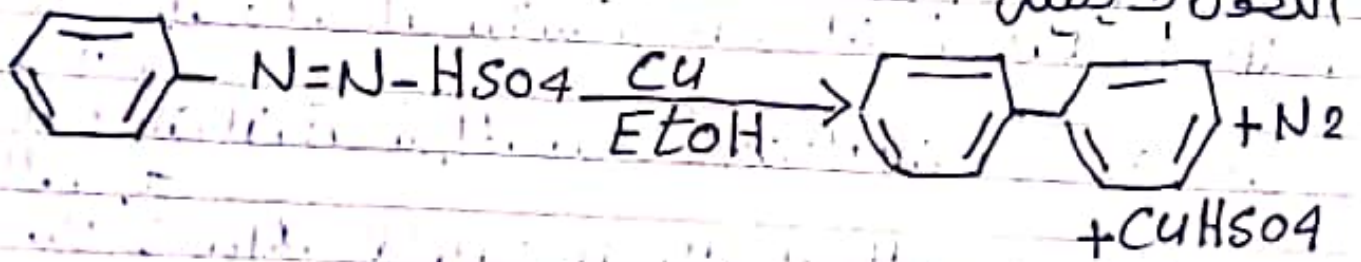 N=N-HSO4 Cu
EtOH
+N2
+CuHSO4